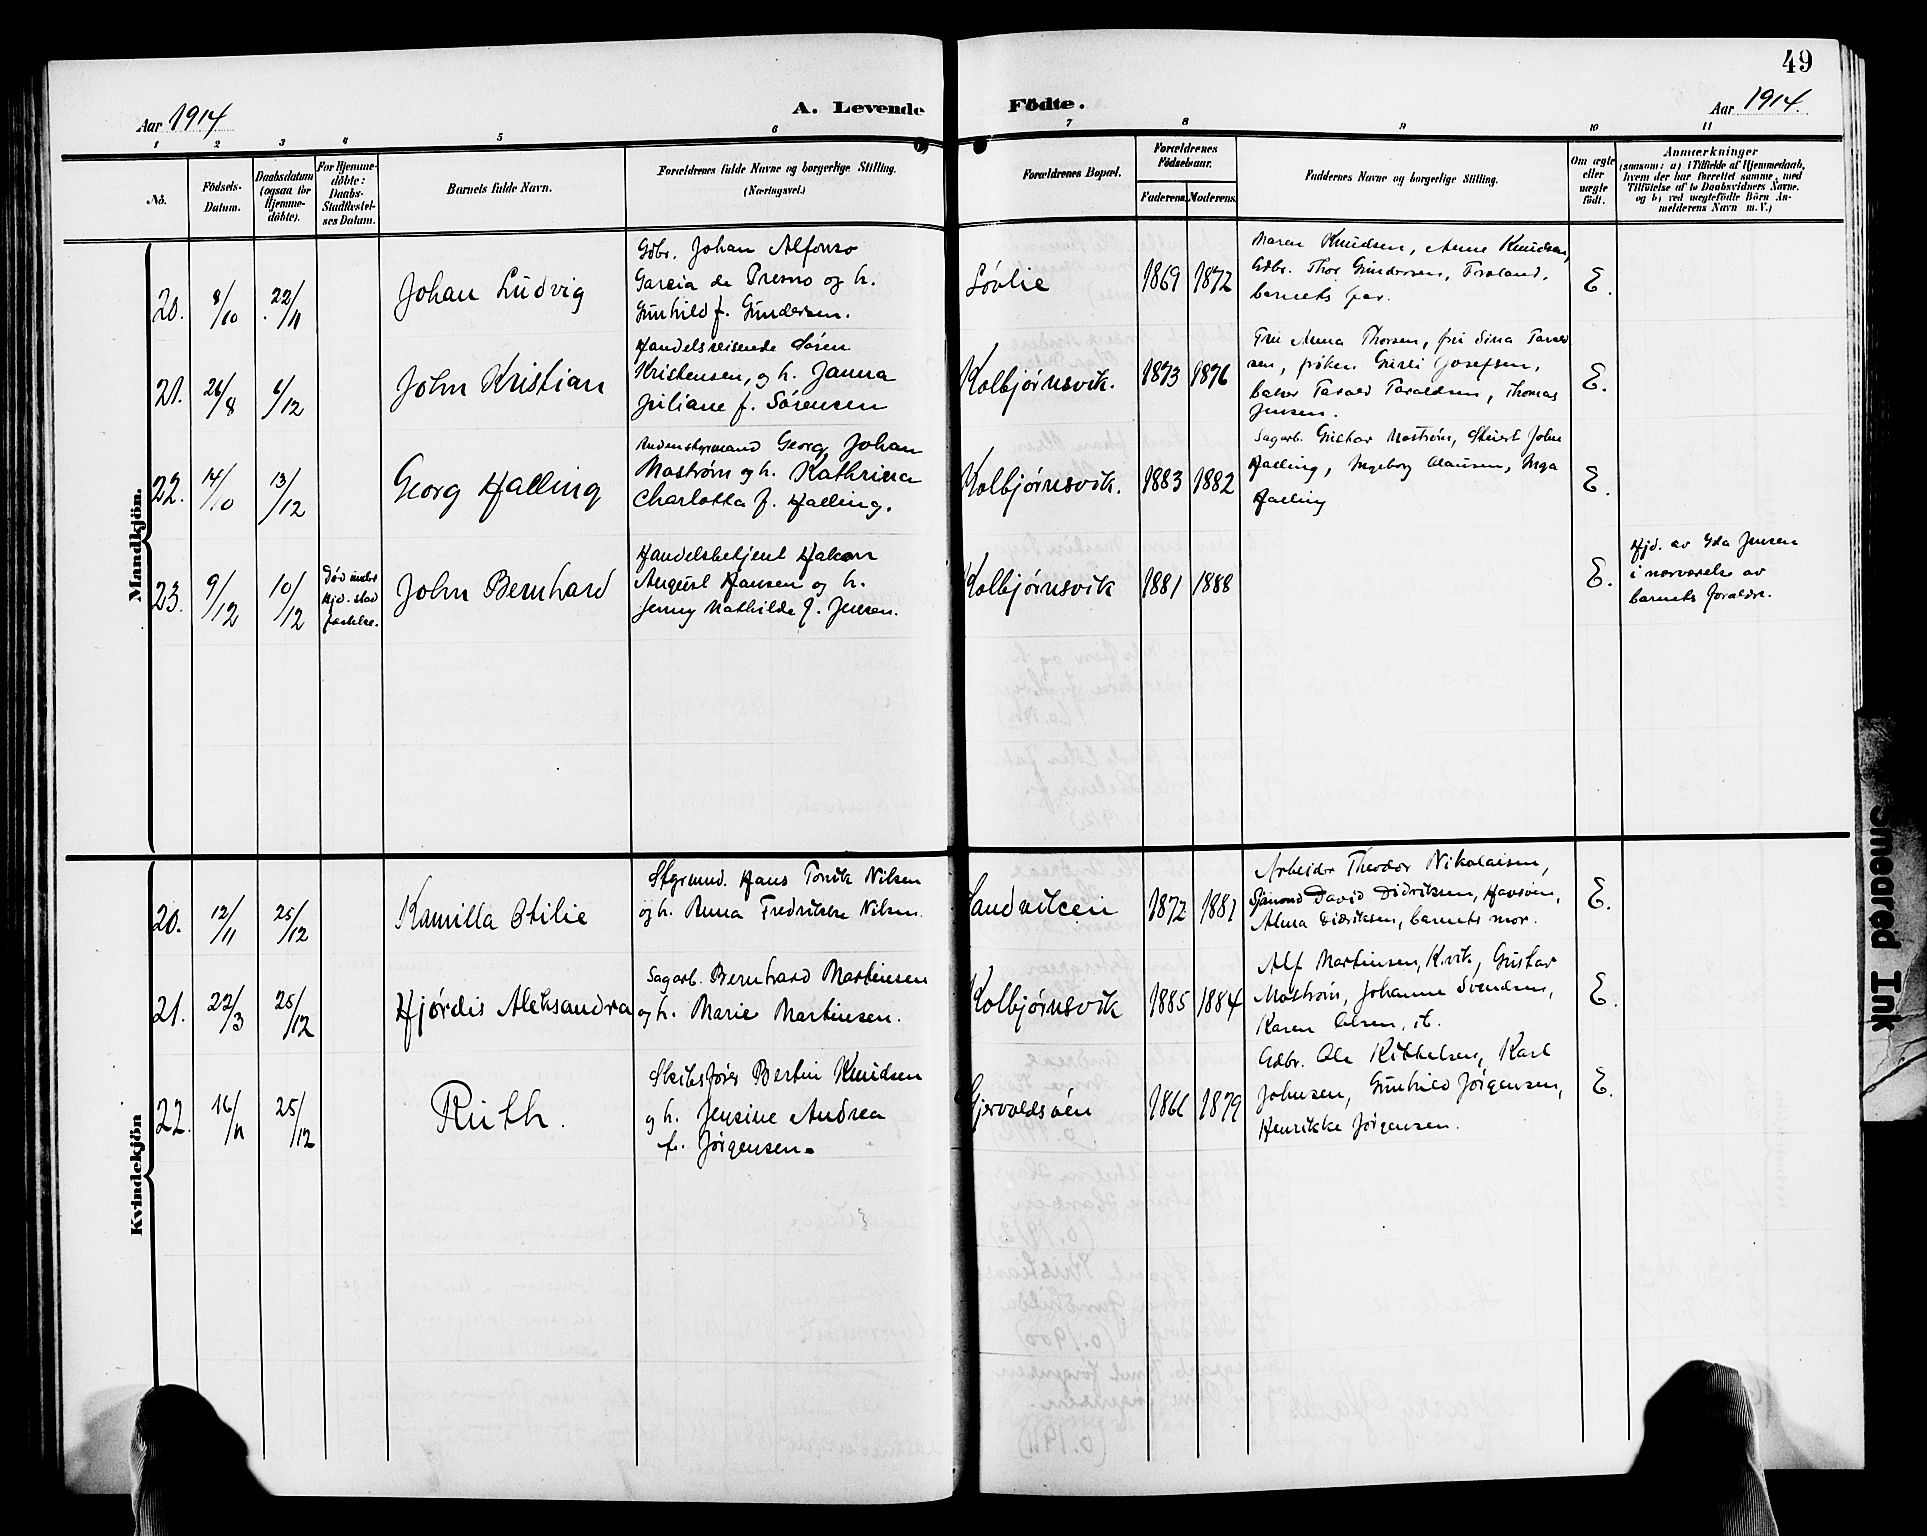 49
Aar 1914
A. Levende
Födte.
Aar 1914.
1 2 3 4 5 6 7 8 9 10 11
No.
Födsels-
Datum.
Daabsdatum
(ogsaa for
Hjemme-
döbte).
For Hjemme-
döbte:
Daabs-
Stadfæstel-
ses Datum.
Barnets fulde Navn.
Forældrenes fulde Navne og borgerlige Stilling.
(Næringsvei.)
Forældrenes Bopæl.
Forældrenes
Födselsaar.
Faderens. Moderens.
Faddernes Navne og borgerlige Stilling.
Om ægte
eller
uægte
födt.
Anmærkninger
(saasom: a) i Tilfælde af Hjemmedaab,
hvem der har forrettet samme, med
Tilföielse af to Daabsvidners Navne,
og b) ved uægtefödte Börn An-
melderens Navn m. V.)
Mandkjön.
20. 8/10 22/11 Johan Ludvig
Gdbr. Johan Alfonso
Garcia de Presno og h.
Gunhild f. Gundersen.
Løvlie 1869 1872
Maren Knudsen, Anne Knudsen,
Gdbr. Thor Gundersen, Froland,
barnets far.
E.
21. 26/8 6/12 John Kristian
Handelsreisende Søren
Kristensen, og h. Janna
Juliane f. Sørensen
Kolbjørnsvik. 1873 1876
Fru Anna Thorsen, fru Sina Tarald
sen, frøken Gusli Josefsen,
baker Tarald Taraldsen, Thomas
Jensen.
E.
22. 14/10 13/12 Georg Halling
Andenstyrmand Georg Johan
Moström og h. Kathrina
Charlotta f. Halling.
Kolbjørnsvik. 1883 1882
Sagarb. Gustav Moström, Stuert John
Halling, Ingeborg Clausen, Inga
Halling
E.
23. 9/12 10/12
Død inden
Hjd. stad
fæstelse.
John Bernhard
Handelsbetjent Hakon
August Hansen og h.
Jenny Mathilde f. Jensen.
Kolbjørnsvik 1881 1888
E.
Hjd. av Ida Jensen
i nærværelse av
barnets forældre.
Kvindekjön
20. 12/11 25/12 Kamilla Otilie
Styrmd. Hans Torvik Nilsen
og h. Anna Fredrikke Nilsen.
Sandviken 1872 1881
Arbeider Theodor Nikolaisen,
Sjømand David Didriksen, Havsøen,
Alma Didriksen, barnets mor.
E.
21. 22/3 25/12 Hjørdis Aleksandra
Sagarb. Bernhard Martinsen
og h. Marie Martinsen.
Kolbjørnsvik 1885 1884
Alf Martinsen, K.vik, Gustav
Moström, Johanne Svendsen,
Karen Olsen, ib.
E.
22. 16/11 25/12 Ruth.
Skibsfører Bertin Knudsen
og h. Jensine Andrea
f. Jørgensen.
Gjervoldsøen 1866 1879
Gdbr. Ole Kittelsen, Karl
Johnsen, Gunhild Jørgensen,
Henrikke Jørgensen.
E.
Smeared Ink